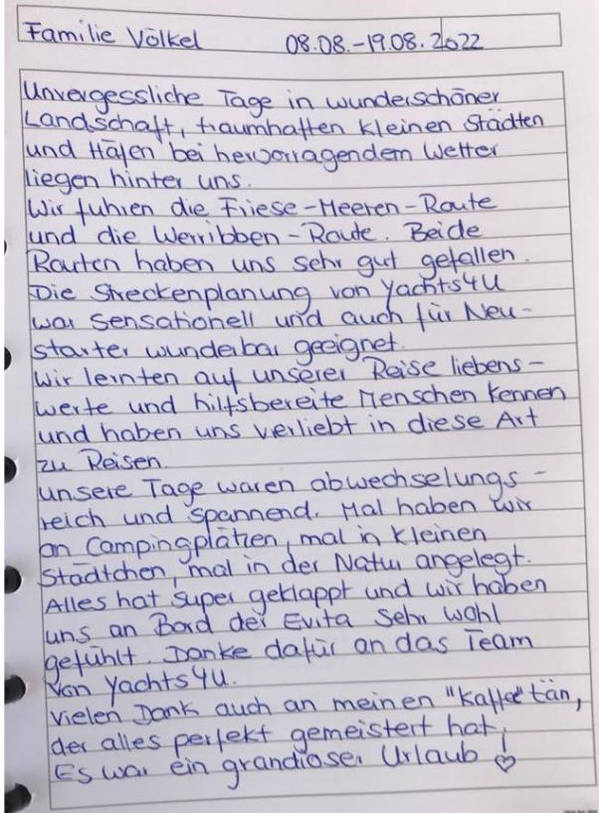 Familie Völkel 08.08.-19.08.2022
Unvergessliche Tage in wunderschöner
Landschaft, traumhaften kleinen Städten
und Häfen bei hervorragendem Wetter
liegen hinter uns.
Wir fuhren die Friese-Meeren-Route
und die Werribben-Route. Beide
Routen haben uns sehr gut gefallen.
Die Streckenplanung von Yachts4U
war sensationell und auch für Neu-
starter wunderbar geeignet.
Wir lernten auf unserer Reise liebens-
werte und hilfsbereite Menschen kennen
und haben uns verliebt in diese Art
zu Reisen.
unsere Tage waren abwechselungs-
reich und spannend. Mal haben wir
an Campingplätzen, mal in kleinen
Städtchen, mal in der Natur angelegt.
Alles hat super geklappt und wir haben
uns an Bord der Evita sehr wohl
gefühlt. Danke dafür an das Team
von Yachts4U.
Vielen Dank auch an meinen "Kaffee"tän,
der alles perfekt gemeistert hat.
Es war ein grandioser Urlaub! ♡